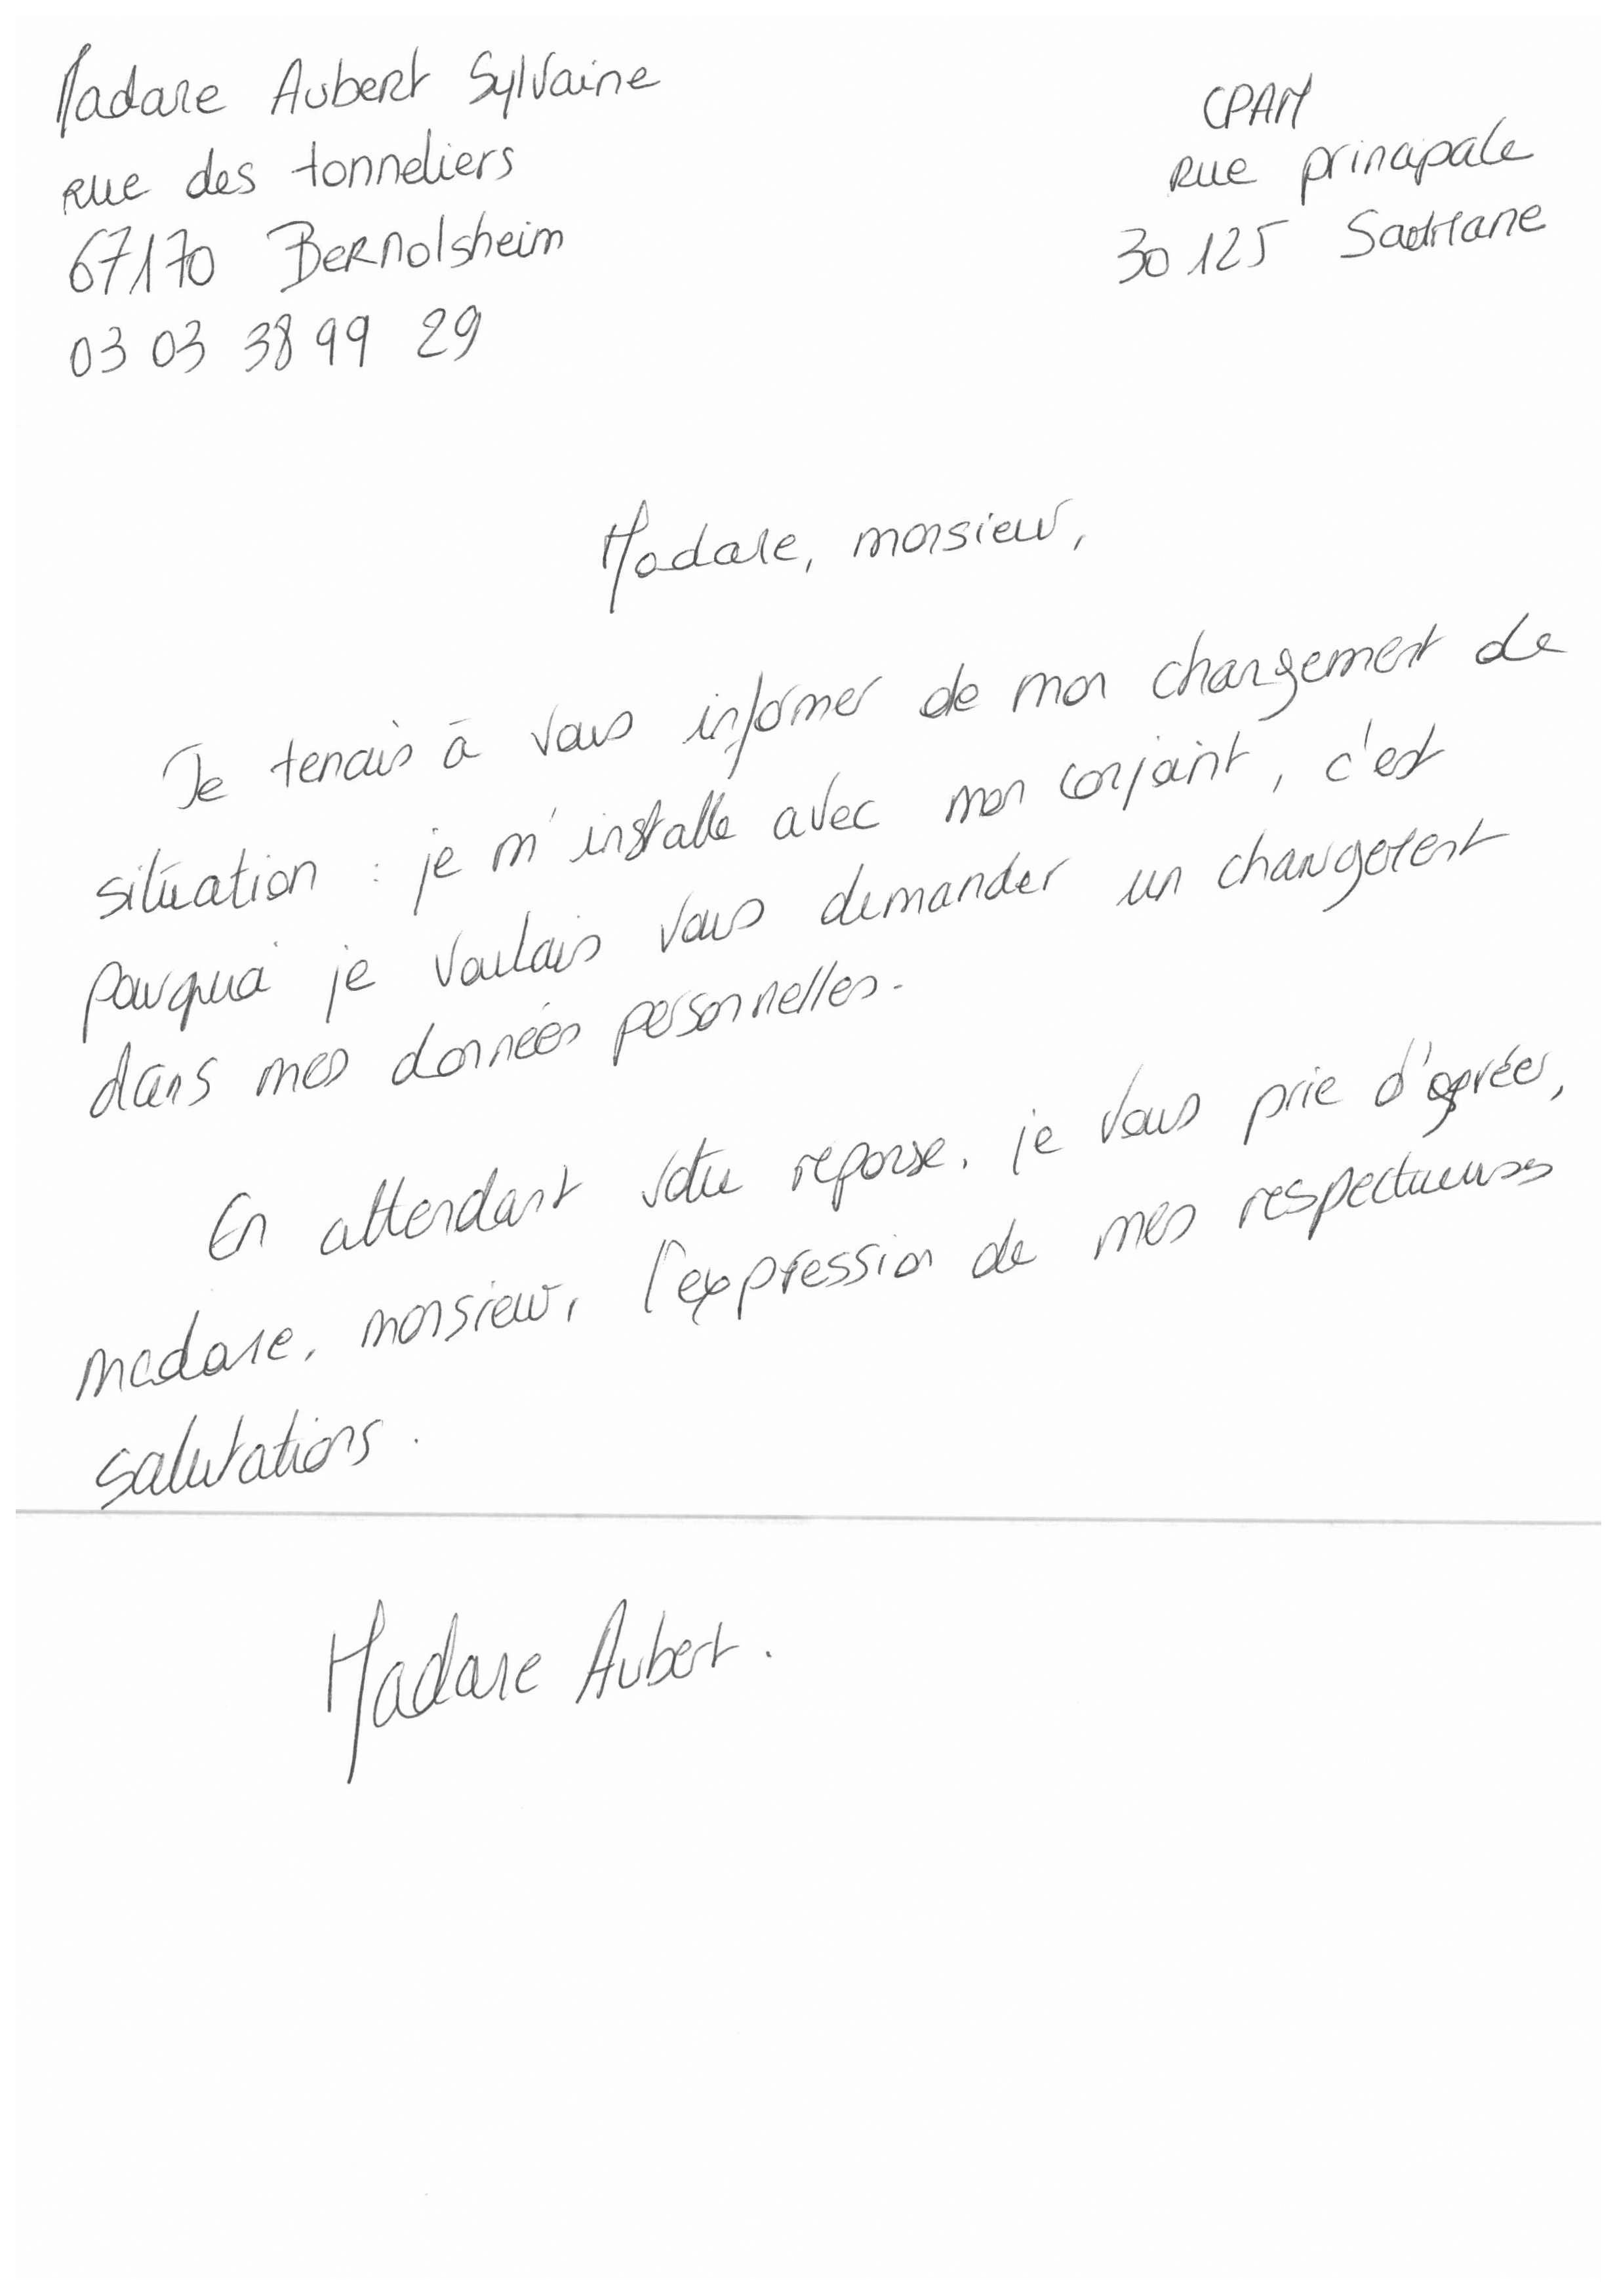 Madame Aubert Sylvaine
rue des tonneliers
67170 Bernolsheim
03 03 38 99 29
CPAM
rue principale
30125 Saumane
Madame, monsieur,
Je tenais à vous informer de mon changement de
situation : je m'installe avec mon conjoint, c'est
pourquoi je voulais vous demander un changement
dans mes données personnelles.
En attendant votre réponse, je vous prie d'agréer,
madame, monsieur, l'expression de mes respectueuses
salutations.
Madame Aubert.